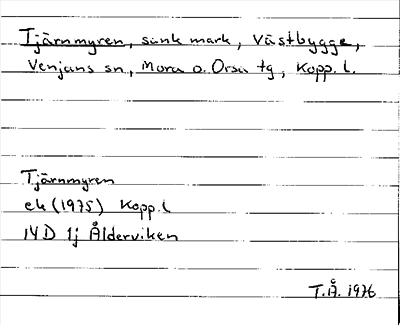 Tjärnmyren, sank mark, Västbygge,
Venjans sn, Mora o. Orsa tg, Kopp. l.
Tjärnmyren
ek (1975) Kopp. l
14D 1j Ålderviken
T.Å. 1976